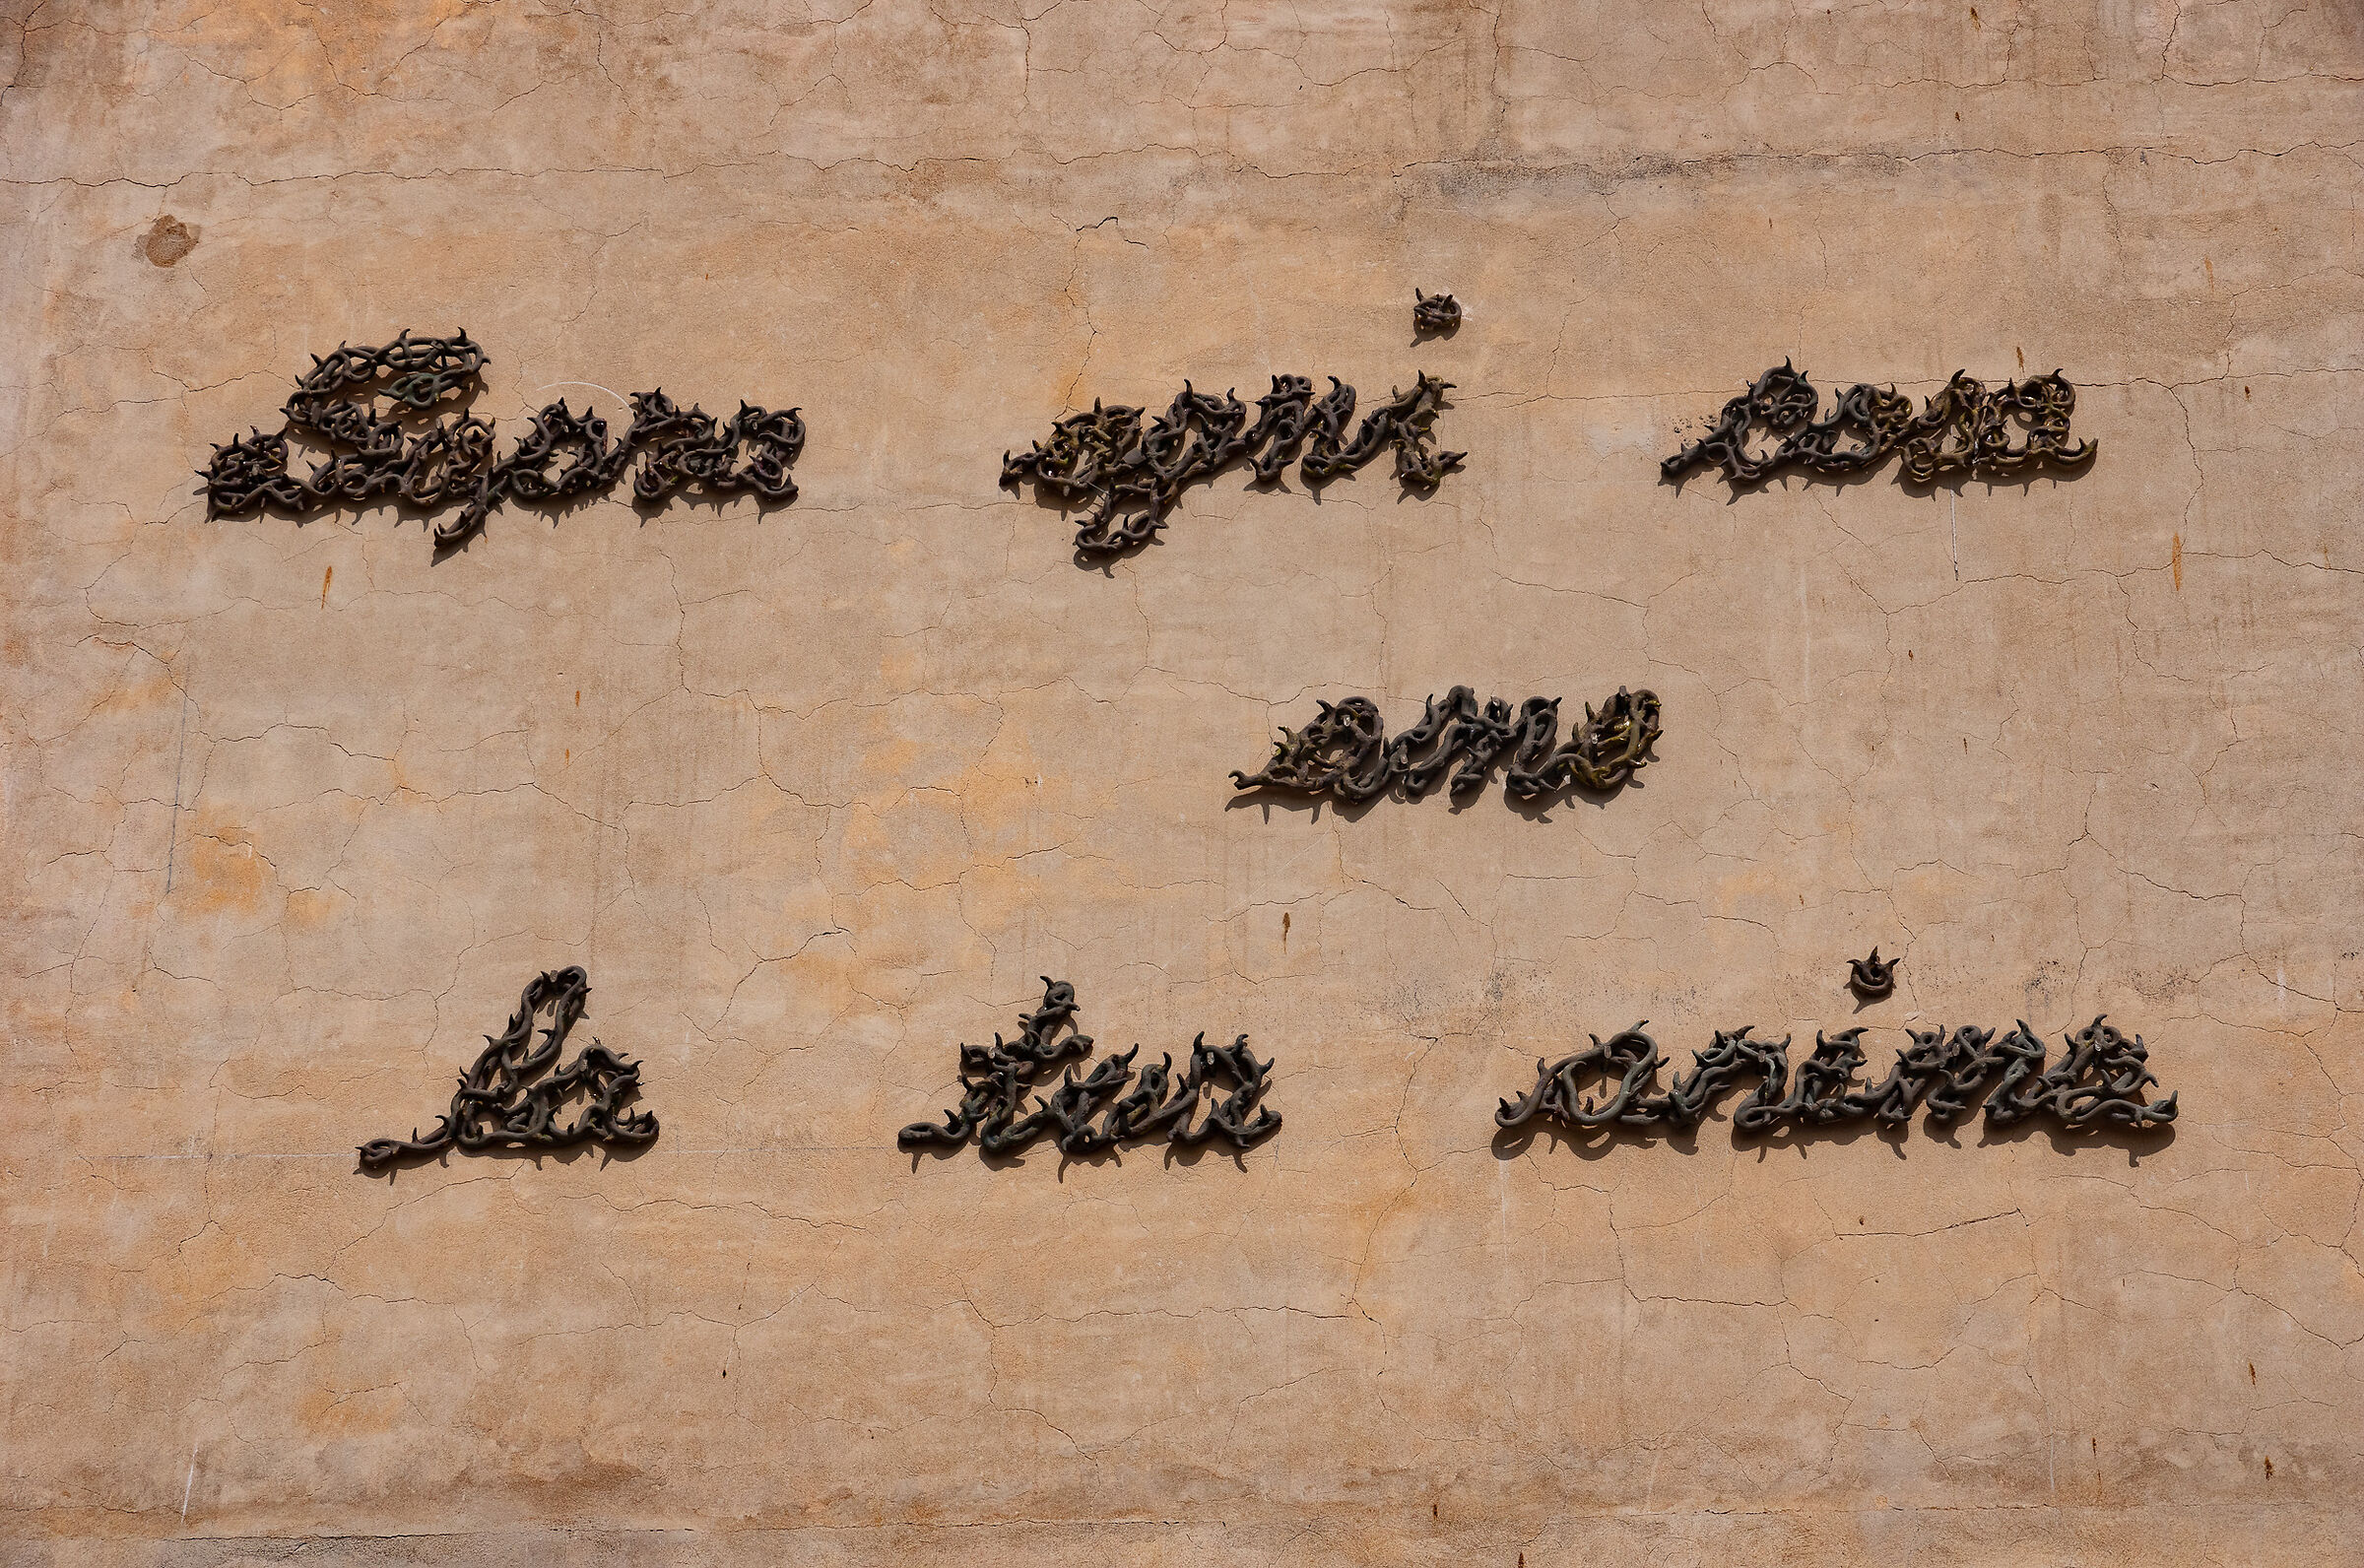 Sopra ogni cosa
amo
la tua anima